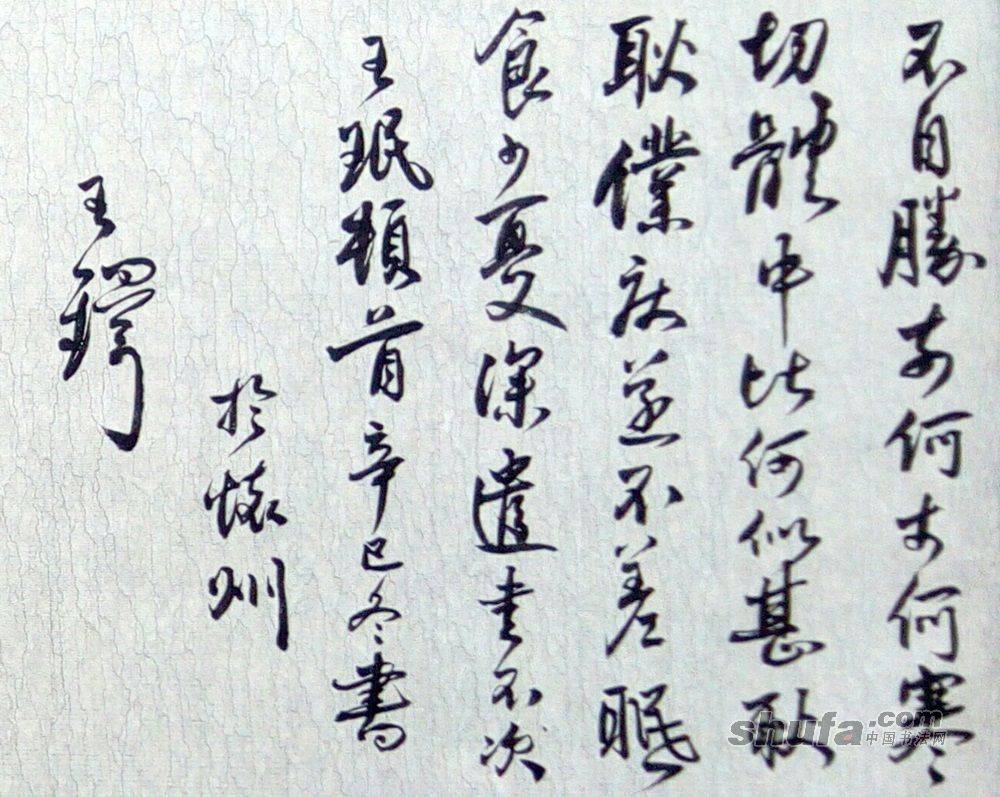 不自勝奈何奈何寒
切體中比何似甚耿
耿僕疾遂不差眠
食少憂深遣書不次
王珉頓首辛巳冬書
於懷州
王鐸
shufa.com
中国书法网